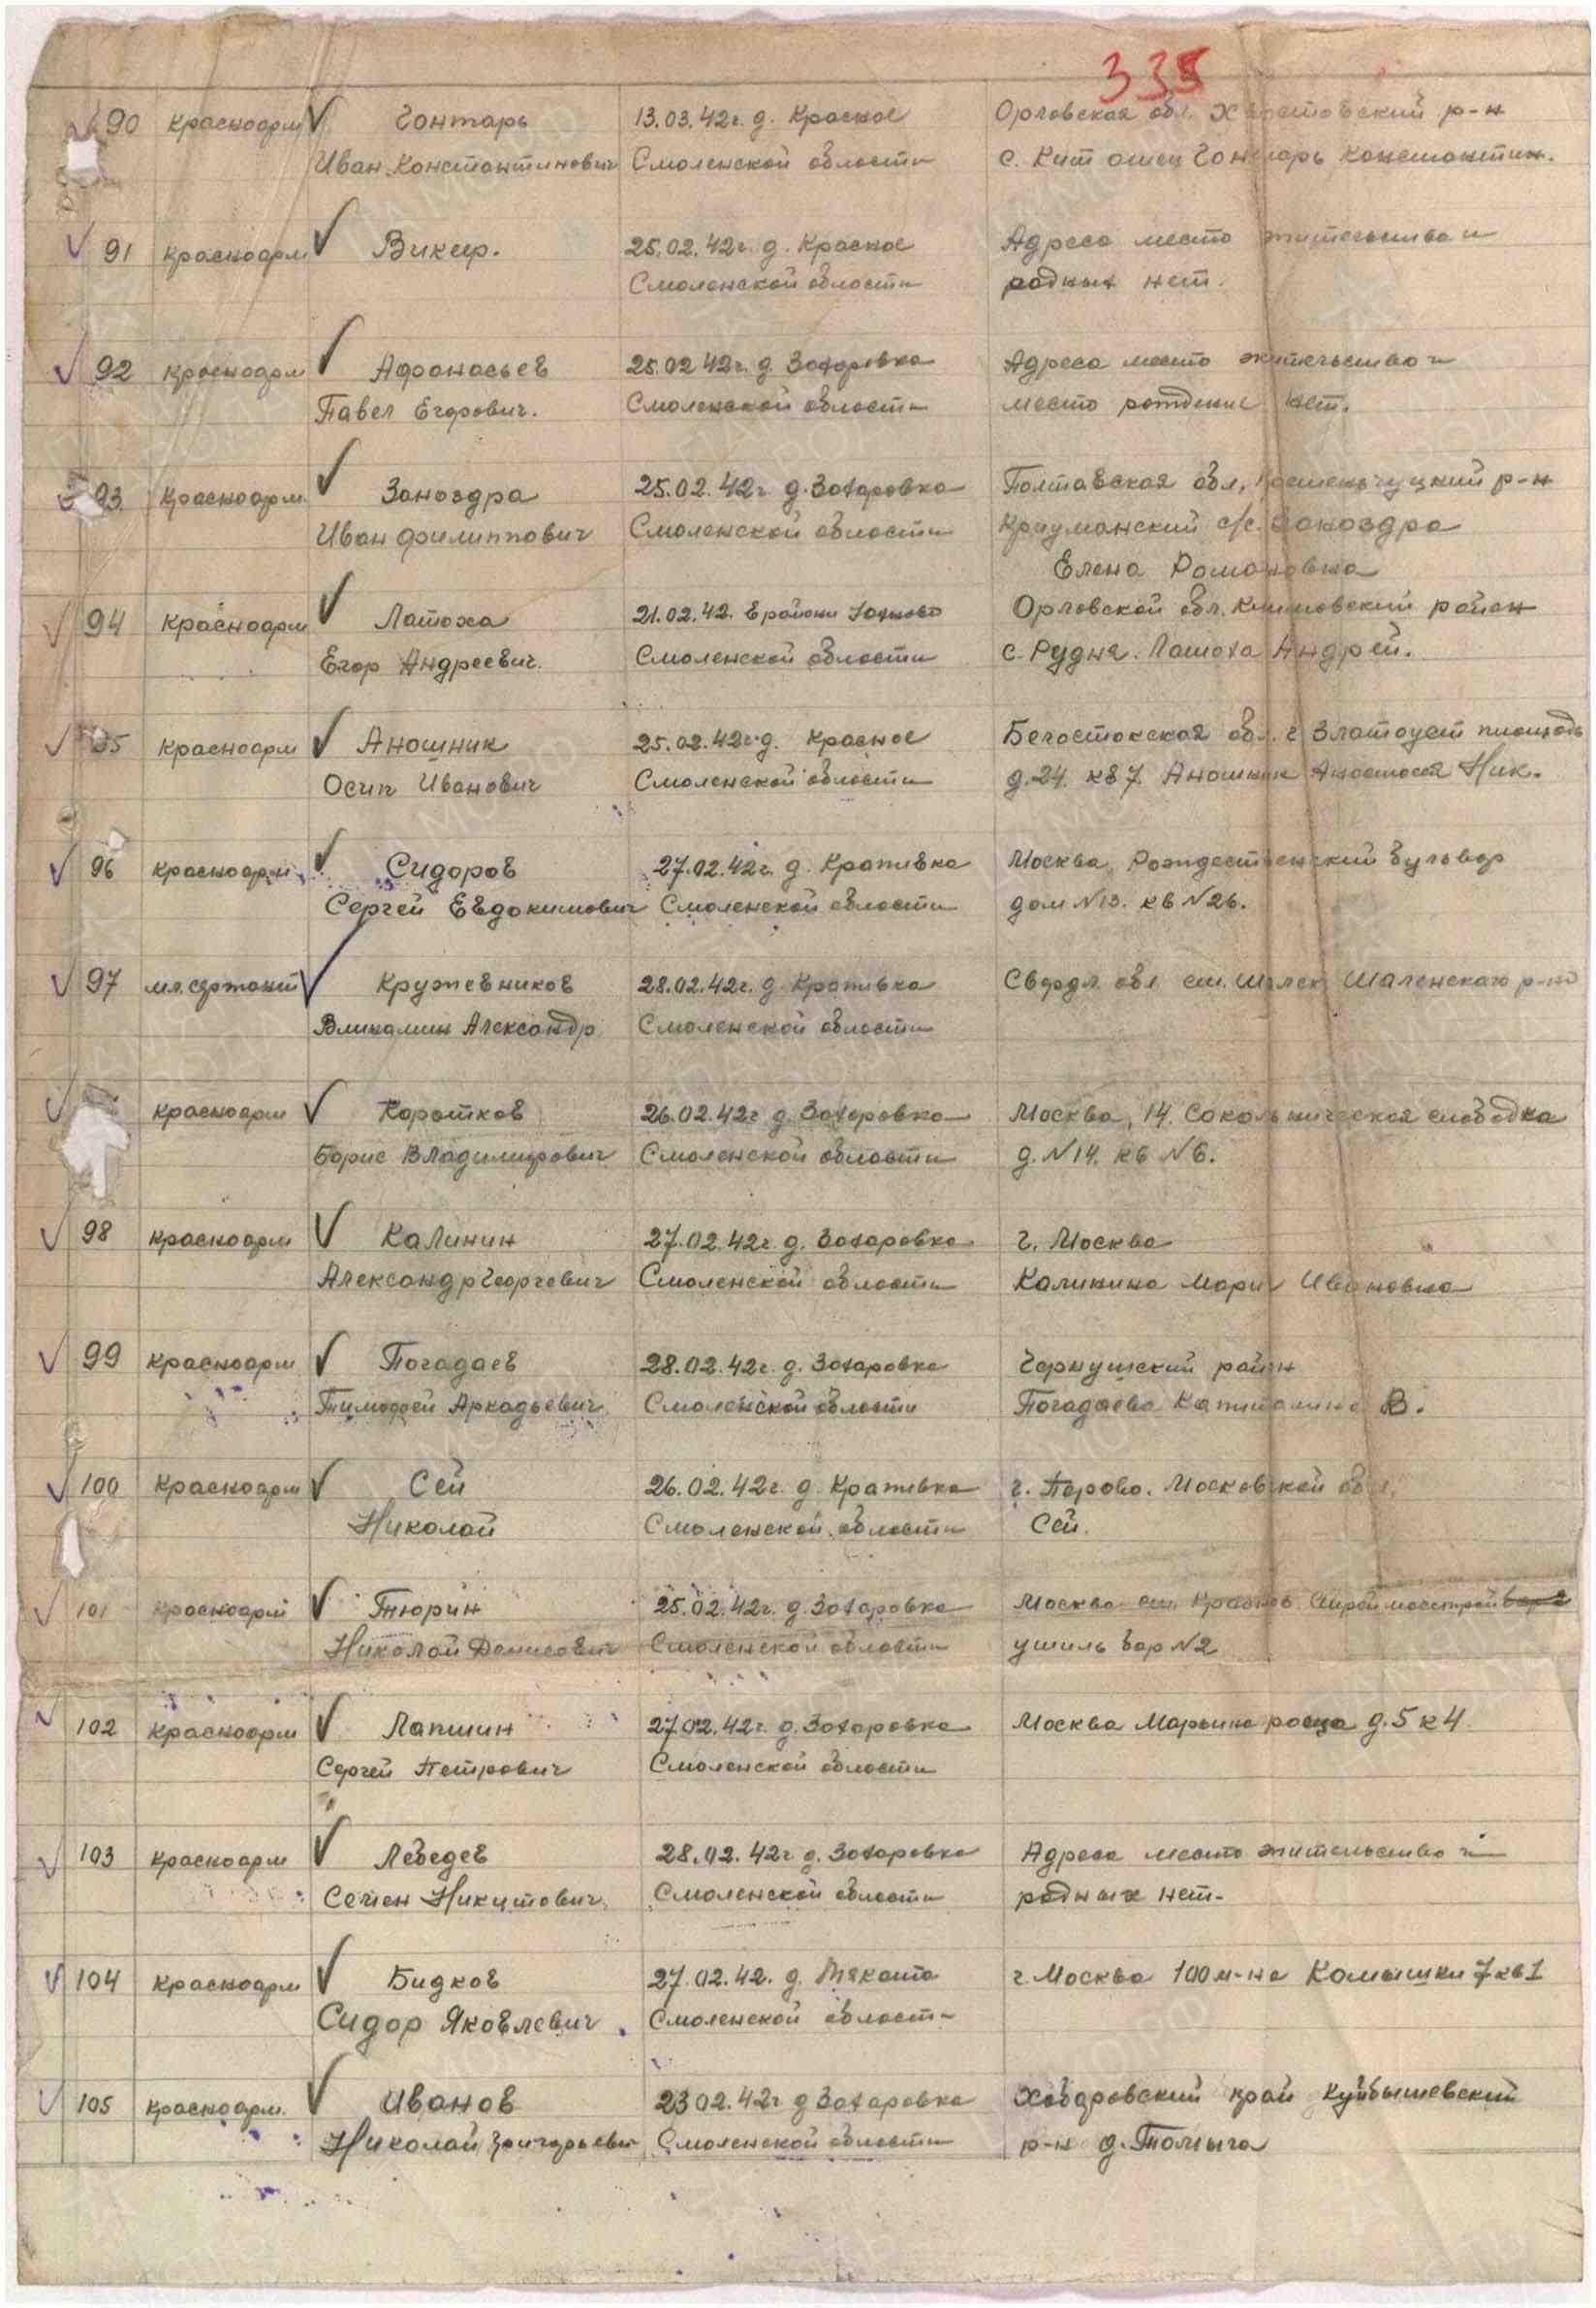 335
90 Красноарм Гонтарь 13.03.42г. д. Красное Орловская обл. р-н
Иван Константинович Смоленской области с. Кит отец Гонтарь Константин.
91 Красноарм Викир. 25.02.42г. д. Красное Адреса место жительства и
Смоленской области родных нет.
92 Красноарм Афанасьев 25.02 42г. д. Захаровка Адреса место жительство и
Павел Егорович. Смоленской области место рождение нет.
93 Красноарм. Заноздра 25.02.42г д. Захаровка Полтавская обл, Кременчуцкий р-н
Иван Филиппович Смоленской области с/с. Заноздра
Елена Романовна
94 Красноарм Латоха 21.02.42. В районе Орловской обл. район
Егор Андреевич. Смоленской области с. Рудня. Латоха Андрей.
95 Красноарм Аношник 25.02.42г. д. Красное Белостокская обл. г Златоуст площадь
Осип Иванович Смоленской области д.24. кв 7 Аношник Ник.
96 Красноарм. Сидоров 27.02.42г. д. Крапивка Москва, Рождественский бульвар
Сергей Евдокимович Смоленской области дом №13. кв №26.
97 мл. сержант Кружевников 28.02.42г. д. Крапивка Свердл. обл ст. р-на
Александр Смоленской области
Красноарм Коротков 26.02.42г д. Захаровка Москва, 14. Сокольническая слободка
Борис Владимирович Смоленской области д. №14. кв №6.
98 Красноарм Калинин 27.02.42г. д. Захаровка г. Москва
Александр Георгевич Смоленской области Калинина Мария Ивановна
99 Красноарм Погадаев 28.02.42г. д. Захаровка Чернушский район
Тимофей Аркадьевич Смоленской области Погадаева Капиталина В.
100 Красноарм Сей 26.02.42г. д. Крапивка г. Перово. Московской обл.
Николай Смоленской области Сей.
101 Красноарм Тюрин 25.02.42г. д. Захаровка Москва ст.
Николай Денисович Смоленской области бар №2
102 Красноарм Лапшин 27.02.42г. д. Захаровка Москва Марьина роща д.5 к4
Сергей Петрович Смоленской области
103 Красноарм Лебедев 28.02.42г д. Захаровка Адреса место жительство и
Семен Никитович. Смоленской области родных нет.
104 Красноарм Бидков 27.02.42. д. г. Москва 100 м-на Камышки 7 кв 1
Сидор Яковлевич Смоленской области
105 Красноарм. Иванов 23 02.42г д Захаровка Хабаровский край Куйбышевский
Николай Григорьевич Смоленской области р-н д. Толмыга